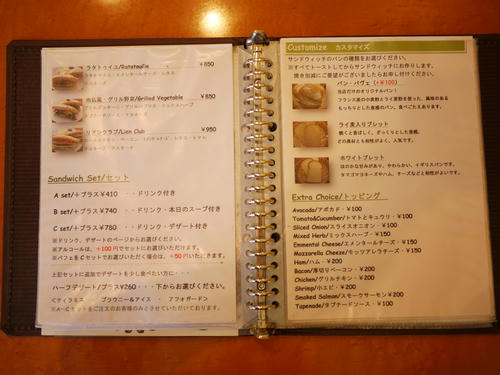 ラタトゥイユ/Ratatoulle ¥850
南仏風・グリル野菜/Grilled Vegetable ¥850
リアンクラブ/Lien Club ¥950
Sandwich Set/セット
A set/＋プラス¥410 ・・ドリンク付き
B set/＋プラス¥740 ・・ドリンク・本日のスープ付き
C set/＋プラス¥780 ・・ドリンク・デザート付き
※ドリンク、デザートのページからお選びください。
※アルコールは、＋100円でセットにいただけます。
※パフェをCセットでお選びいただける場合は、＋50円いただきます。
上記セットに追加でデザートを少し食べたい方に・・
ハーフデザート/プラス¥260・・・下からお選びください。
＜ティラミス ブラウニー&アイス ・ アフォガード＞
※A～Cセットをご注文のお客様のみとさせていただいております。
Customize カスタマイズ
サンドウィッチのパンの種類をお選びください。
※すべてトーストしてからサンドウィッチにお作りします。
焼き加減にご要望がございましたらお申し付けください。
パン・パヴェ (＋¥100)
当店だけのオリジナルパン！
フランス産の小麦粉とライ麦粉を使った、風味のある
もっちりとした食感のパン。食べごたえあります。
ライ麦入りブレット
軽くと香ばしく、ざっくりとした食感。
どの具材とも相性がよく、人気です。
ホワイトブレット
ほのかな甘みがあり、やわらかい、イギリスパンです。
タマゴマヨネーズやハム、チーズなどと相性がよいです。
Extra Choice/トッピング
Avocado/アボカド・¥100
Tomato&Cucumber/トマトとキュウリ・¥100
Sliced Onion/スライスオニオン・¥100
Mixed Herb/ミックスハーブ・¥150
Emmental Cheese/エメンタールチーズ・¥150
Mozzarella Cheese/モッツアレラチーズ・¥150
Ham/ハム・¥200
Bacon/厚切りベーコン・¥200
Chicken/グリルチキン・¥200
Shrimp/小エビ・¥200
Smoked Salmon/スモークサーモン¥200
Tapenade/タプナードソース・¥100